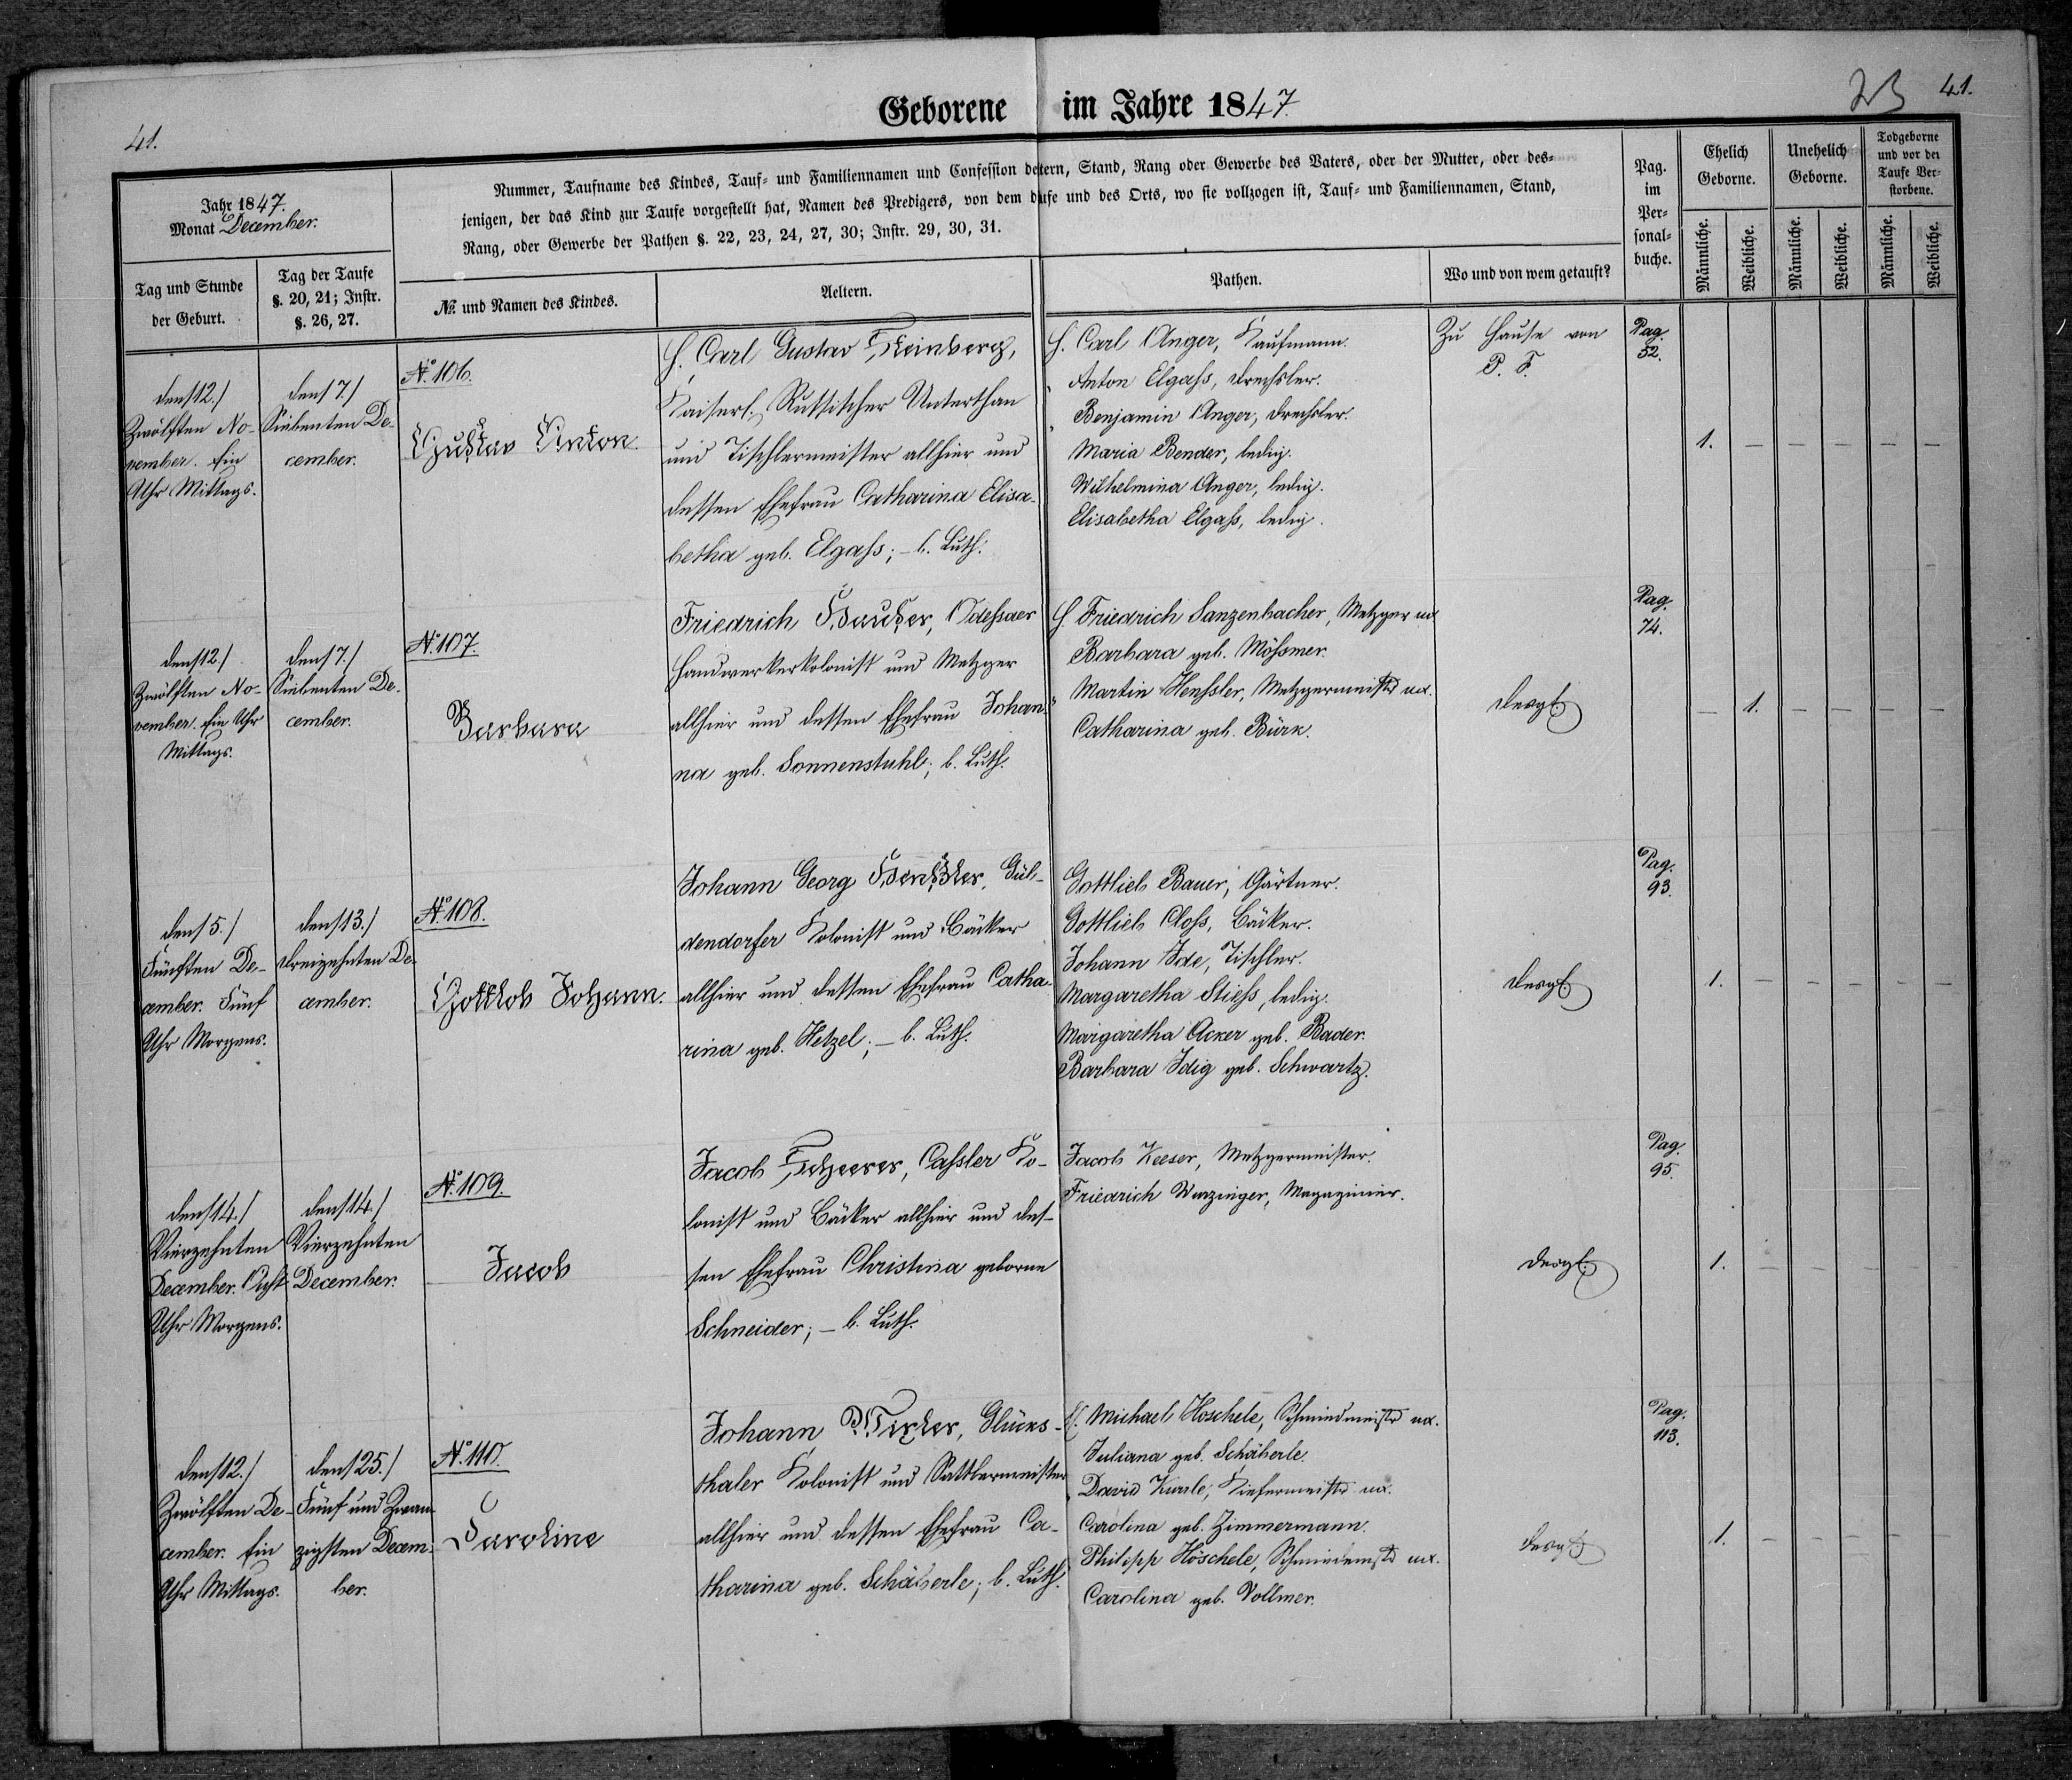 Geborene im Jahre 1847.
23 41.
41.
Jahr 1847.
Monat December.
Nummer, Taufname des Kindes, Tauf- und Familiennamen und Confession de tern, Stand, Rang oder Gewerbe des Vaters, oder der Mutter, oder des-
jenigen, der das Kind zur Taufe vorgestellt hat, Namen des Predigers, von dem d ufe und des Orts, wo sie vollzogen ist, Tauf- und Familiennamen, Stand,
Rang, oder Gewerbe der Pathen §. 22, 23, 24, 27, 30; Instr. 29, 30, 31.
Pag.
im
Per-
sonal-
buche.
Ehelich
Geborne.
Unehelich
Geborne.
Todgeborne
und vor der
Taufe Ver-
storbene.
Tag und Stunde
der Geburt.
Tag der Taufe
§. 20, 21; Instr.
§. 26, 27.
№ und Namen des Kindes.
Aeltern.
Pathen.
Wo und von wem getauft?
Männliche.
Weibliche.
Männliche.
Weibliche.
Männliche.
Weibliche.
den /12./
Zwölften No-
vember. Ein
Uhr Mittags.
den /7./
Siebenten De-
cember.
No. 106.
Gustav Anton
H. Carl Gustav Steinberg,
Kaiserl. Russischer Unterthan
und Tischlermeister allhier und
dessen Ehefrau Catharina Elisa-
betha geb. Elgaß; – b. Luth.
H. Carl Anger, Kaufmann.
" Anton Elgaß, Drechsler.
" Benjamin Anger, Drechsler.
Maria Bender, ledig.
Wilhelmina Anger, ledig.
Elisabetha Elgaß, ledig.
Zu Hause von
P. F.
Pag.
52.
1. – – – – –
den /12./
Zwölften No-
vember. Ein Uhr
Mittags.
den /7./
Siebenten De-
cember.
No. 107.
Barbara
Friedrich Hauser, Odessaer
Handwerkerkolonist und Metzger
allhier und dessen Ehefrau Johan-
na geb. Sonnenstuhl; b. Luth.
H. Friedrich Sanzenbacher, Metzger ux.
Barbara geb. Mößmer.
" Martin Henßler, Metzgermeister ux.
Catharina geb. Bürk.
desgl.
Pag.
74.
– 1. – – – –
den /5./
Fünften De-
cember. Fünf
Uhr Morgens.
den /13./
Dreizehnten De-
cember.
No. 108.
Gottlob Johann.
Johann Georg Henßler, Gül-
dendorfer Kolonist und Bäcker
allhier und dessen Ehefrau Catha-
rina geb. Hetzel; – b. Luth.
Gottlieb Bauer, Gärtner.
Gottlieb Closs, Bäcker.
Johann Ide, Tischler.
Margaretha Stieß, ledig.
Margaretha Acker geb. Bader.
Barbara Idig geb. Schwartz.
desgl.
Pag.
93.
1. – – – – –
den /14./
Vierzehnten
December. Acht
Uhr Morgens.
den /14./
Vierzehnten
December.
No. 109.
Jacob
Jacob Scheerer, Cassler Ko-
lonist und Bäcker allhier und des-
sen Ehefrau Christina geborne
Schneider; – b. Luth.
Jacob Keeser, Metzgermeister.
Friedrich Wurzinger, Magazinier.
desgl.
Pag.
95.
1. – – – – –
den /12./
Zwölften De-
cember. Ein
Uhr Mittags.
den /25./
Fünf und Zwan-
zigsten Decem-
ber.
No. 110.
Caroline
Johann Wixler, Glücks-
thaler Kolonist und Sattlermeister
allhier und dessen Ehefrau Ca-
tharina geb. Schäberle; b. Luth.
H. Michael Höschele, Schmiedmeister ux.
Juliana geb. Schäberle.
" David Kurrle, Kiefermeister ux.
Carolina geb. Zimmermann.
Philipp Höschele, Schmiedemstr ux.
Carolina geb. Vollmer.
desgl.
Pag.
113.
1. – – – – –